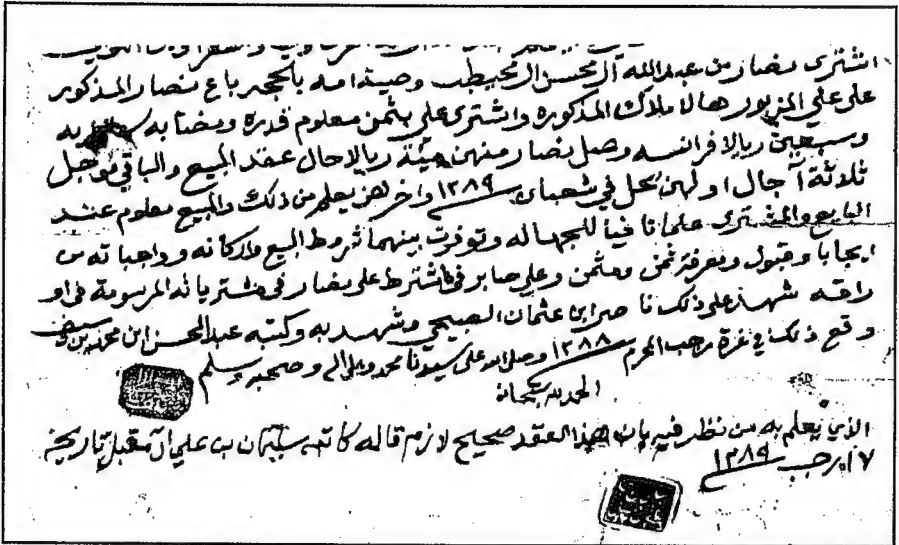 اشترى نصار من عبدالله آل محسن المحيطب وصية امه بالحجر باع نصار المذكور
على علي المزبور هالاملاك المذكوره واشترى علي بثمن معلوم قدره ونصابه
وسبعين ريالا فرانسه وصل نصار منهن مئة ريالا حال عقد المبيع والباقي مؤجل
ثلاثة آجال اولهن يحل في شعبان ١٢٨٩ واخرهن يعلم من ذلك والمبيع معلوم عند
البايع والمشترى علما نافيا للجهاله وتوفرت بينهما شروط البيع واركانه وواجباته من
ايجاب وقبول ومعرفة ثمن ومثمن وعلي صابر في اشترط على نصار في مشترياته المرسومة
شهد على ذلك ناصر ابن عثمان الصبيحي وشهد به وكتبه عبدالمحسن ابن محمد بن سيف
وقع ذلك في غرة رجب المحرم ١٢٨٨ وصلى الله على سيدنا محمد وعلى اله وصحبه وسلم
الحمد لله سبحانه
الذي يعلم به من نظر فيه بان هذا العقد صحيح لازم قاله كاتبه سليمان بن علي آل مقبل بتاريخ
١٧ رجب ١٢٨٩